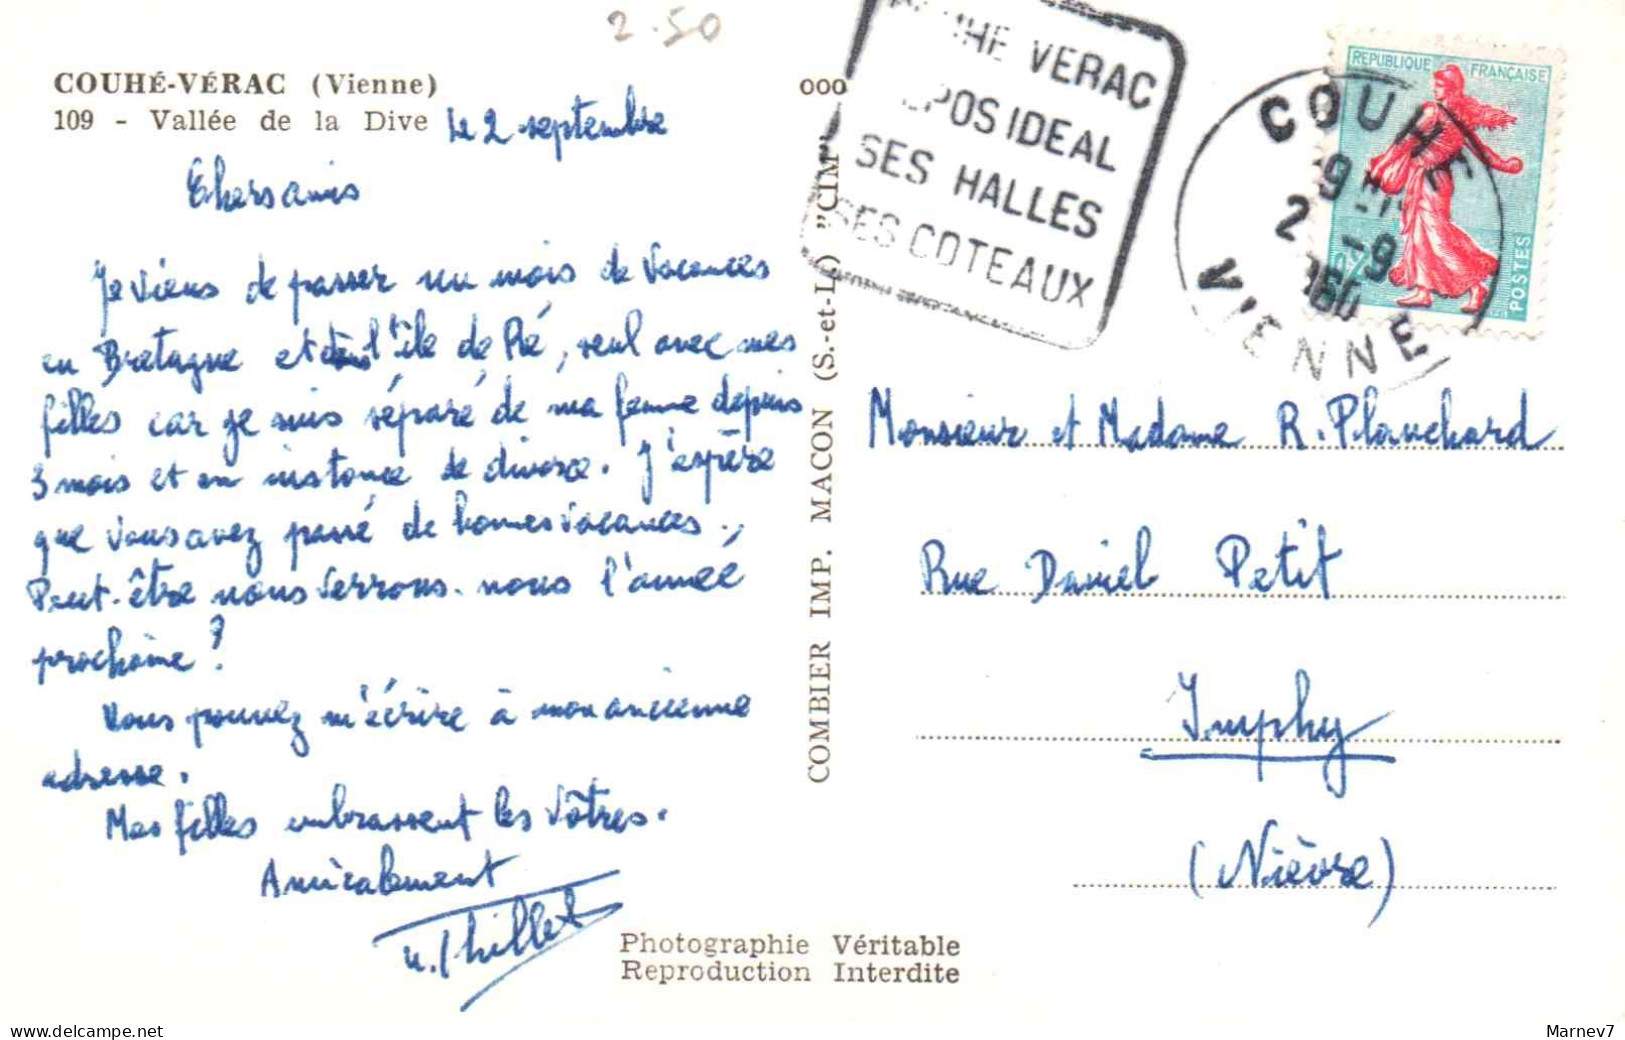 2.50
COUHÉ-VÉRAC (Vienne)
109 - Vallée de la Dive
Le 2 septembre
Chers amis
Je viens de passer un mois de vacances
en Bretagne et dans l'île de Ré, seul avec mes
filles car je suis séparé de ma femme depuis
3 mois et en instance de divorce. J'espère
que vous avez passé de bonnes vacances.
Peut-être nous verrons-nous l'année
prochaine?
Vous pouvez m'écrire à mon ancienne
adresse.
Mes filles embrassent les vôtres.
Amicalement
Thillet
Photographie Véritable
Reproduction Interdite
COMBIER IMP. MACON (S.-et-L.) "CIM"
000
UHE VERAC
EPOS IDEAL
SES HALLES
SES COTEAUX
COUHE
2 -9
1960
VIENNE
REPUBLIQUE FRANÇAISE
POSTES
Monsieur et Madame R. Planchard
Rue Daniel Petit
Imphy
(Nièvre)
delcampe.net
Marnev7